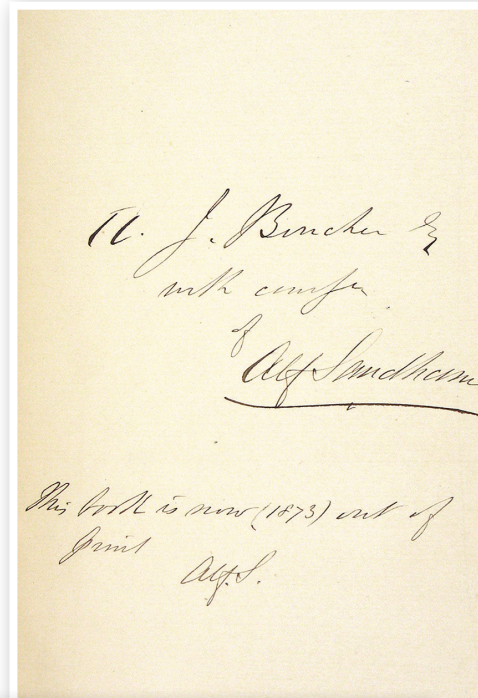 J. Boucher Esq
with compts
of
Alf Sandham
This book is now (1873) out of
print
Alf. S.